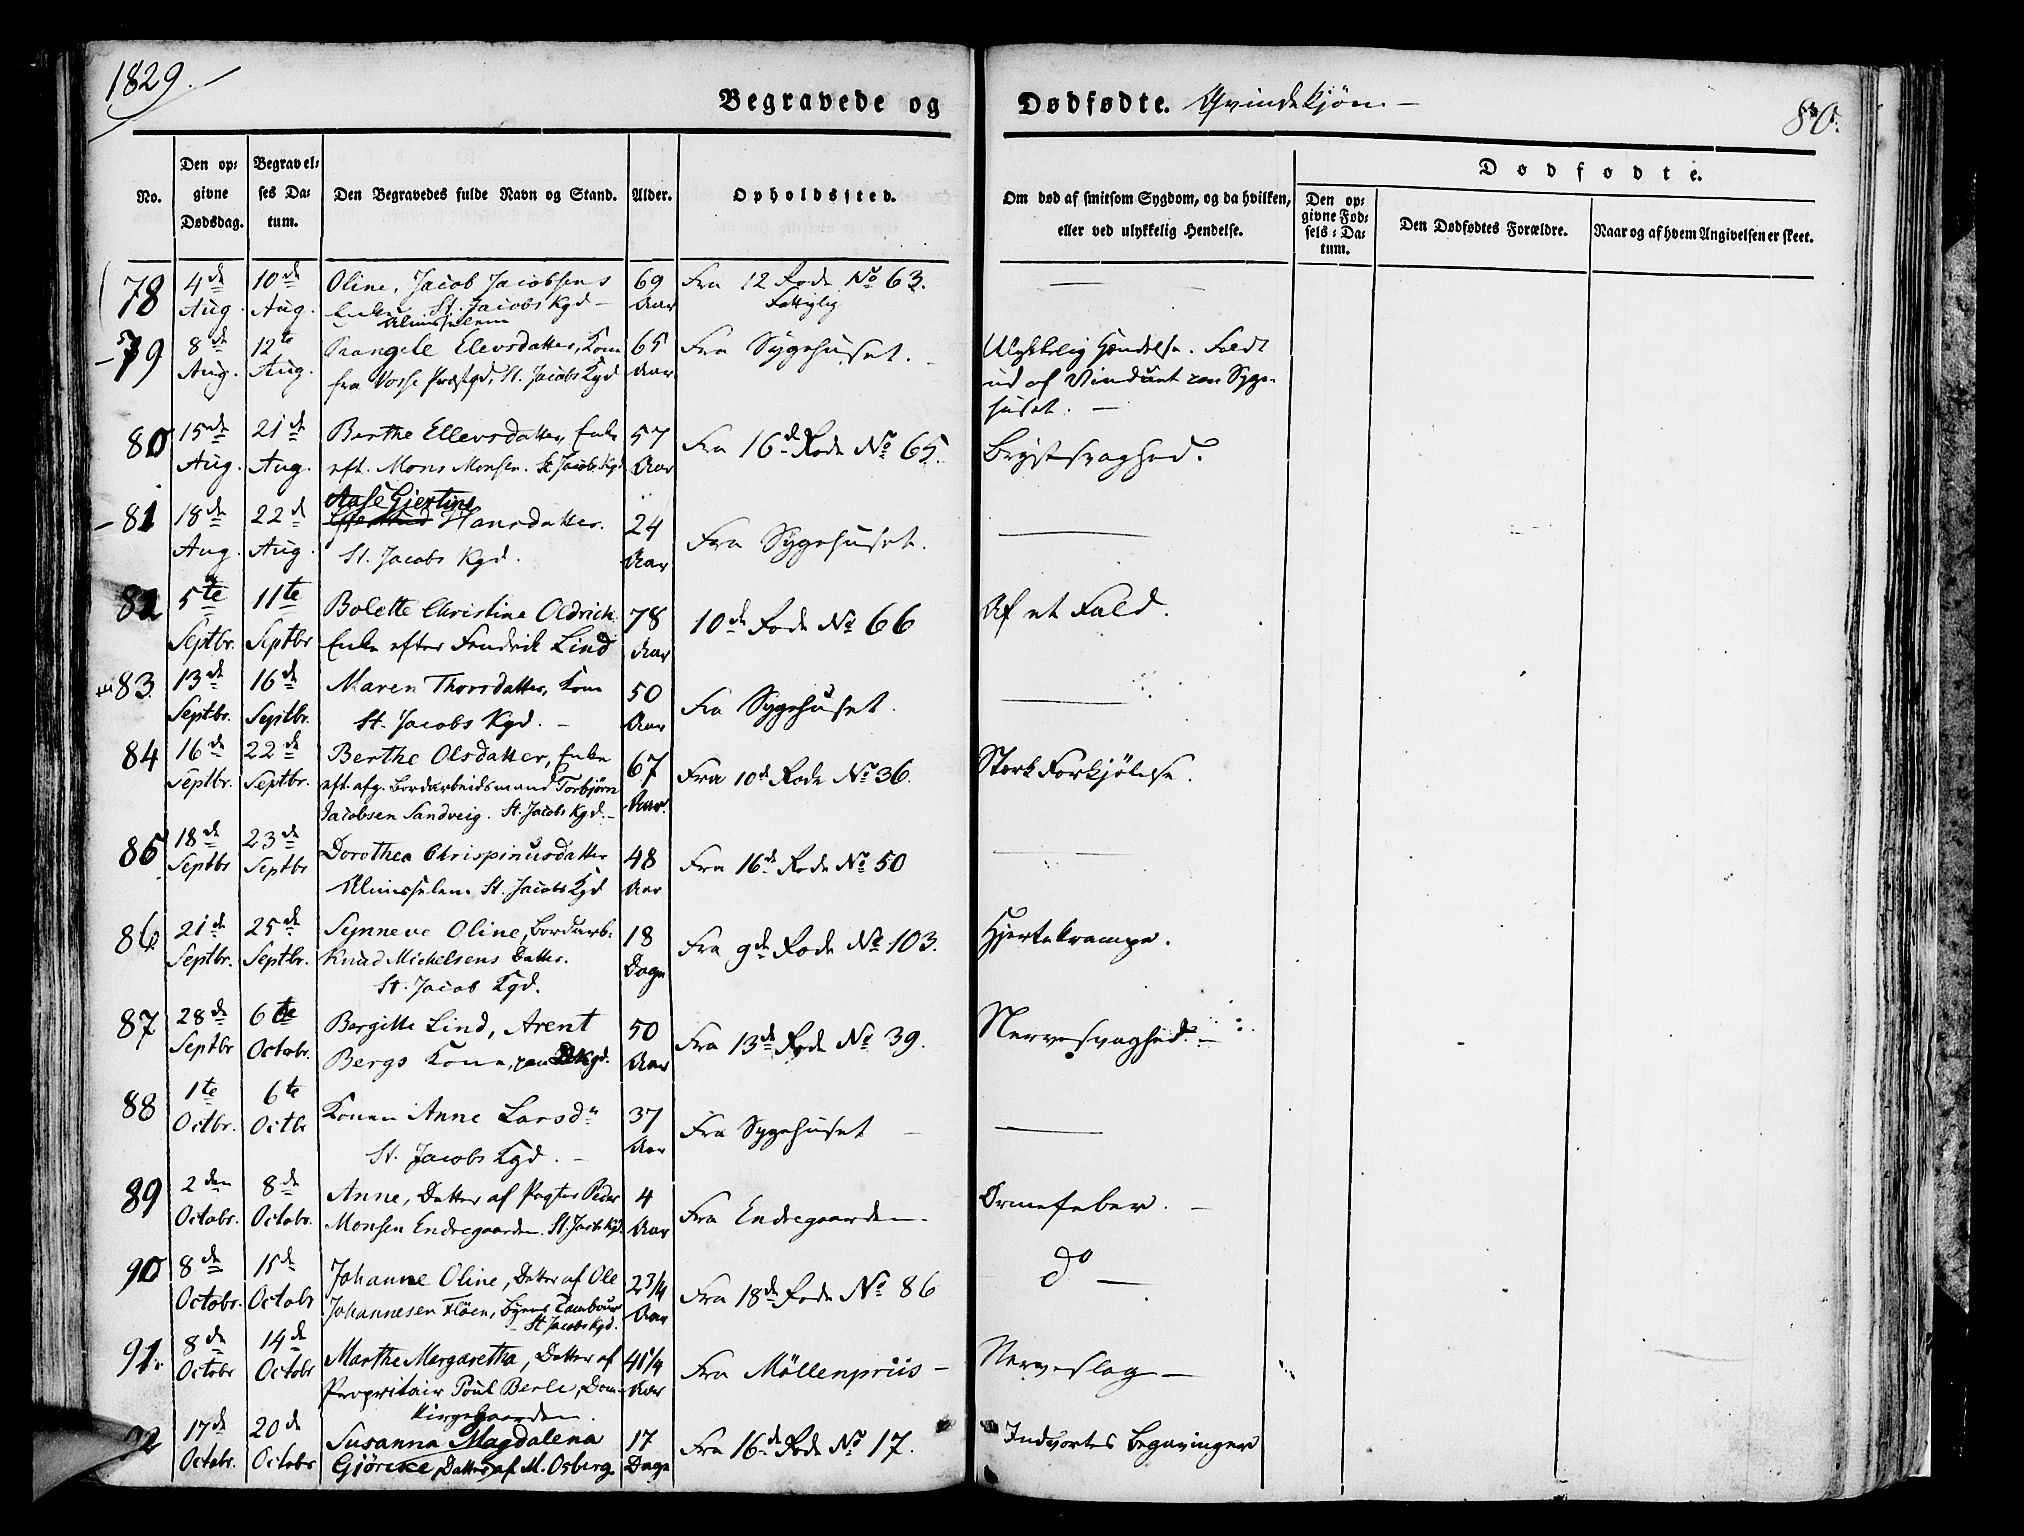 1829.
Begravede og Dødfødte. Qvindekjøn.
80.
No. Den opgivne Dødsdag. Begravelses Datum. Den Begravedes fulde Navn og Stand. Alder. Opholdssted. Om død af smitsom Sygdom, og da hvilken, eller ved ulykkelig Hendelse.
Dødfødte.
Den opgivne Fødsels-Datum. Den Dødfødtes Forældre. Naar og af hvem Angivelsen er skeet.
78 4de Aug. 10de Aug. Oline, Jacob Jacobsens 69 Aar Fra 12 Rode No 63. —
Enke St. Jacobs Kgd —
Fattiglig
Almisselem
79 8de Aug. 12te Aug. Elevsdatter, Kone 65 Aar Fra Sygehuset. Ulykkelig Hændelse. Faldt
fra Vosse Præstgd, St. Jacobs Kgd ud af Vinduet paa Syge-
huset. —
80 15de Aug. 21de Aug. Berthe Ellevsdatter, Enke 57 Aar Fra 16de Rode No 65. Brystsvaghed.
eft. Mons Monsen. St. Jacobs Kgd
81 18de Aug. 22de Aug. Aase Giertine Hansdatter. 24 Aar Fra Sygehuset. —
St. Jacobs Kgd.
82 5te Septbr. 11te Septbr Bolette Christine Oldrich 78 Aar 10de Rode No 66 Af et Fald.
Enke efter Fredrik Lind
83. 13de Septbr. 16de Septbr. Maren Thorsdatter, Kone 50 Aar Fra Sygehuset. —
St. Jacobs Kgd. —
84 16de Septbr. 22de Septbr. Berthe Olsdatter, Enke 67 Aar. Fra 10de Rode No 36. Stærk Forkjølelse.
eft. afg. Bordarbeidsmand Torbjørn
Jacobsen Sandveig. St. Jacobs Kgd. —
85 18de Septbr 23de Septbr Dorothea Chrispinusdatter 48 Aar Fra 16de Rode No 50 —
Almisselem St. Jacobs Kgd
86 21de Septbr. 25de Septbr. Synneve Oline, Bordarb. 18 Dage Fra 9de Rode No 103. Hjertekrampe.
Knud Michelsens Datter.
St. Jacob Kgd.
87 28de Septbr 6te Octobr. Bergitte Lind, Arent 50 Aar Fra 13de Rode No 39. Nervesvaghed. —
Bergs Kone, paa Kgd.
88 1te Octbr. 6te Octbr Konen Anne Larsdr 37 Aar Fra Sygehuset — —
St. Jacobs Kgd. —
89 2den Octobr. 8de Octobr. Anne, Datter af Pagter Peder 4 Aar Fra Endregaarden. Ormefeber. —
Monsen Endregaarden. St. Jacobs Kgd.
90 8de Octobr. 15de Octobr Johanne Oline, Datter af Ole 2 3/4 Aar Fra 18de Rode No 86 do —
Johannesen Fløen, Byens Tambour
St. Jacobs Kgd.
91. 8de Octobr 14de Octobr Marthe Margaretha, Datter af 4 1/4 Aar Fra Möllenpriis — Nerveslag —
Proprietair Poul Berle, Dom-
kirkegaarden.
92 17de Octobr. 20de Octobr Susanna Magdalena 17 Dage Fra 16de Rode No 17. Indvortes
Giöreke, Datter af M. Osberg